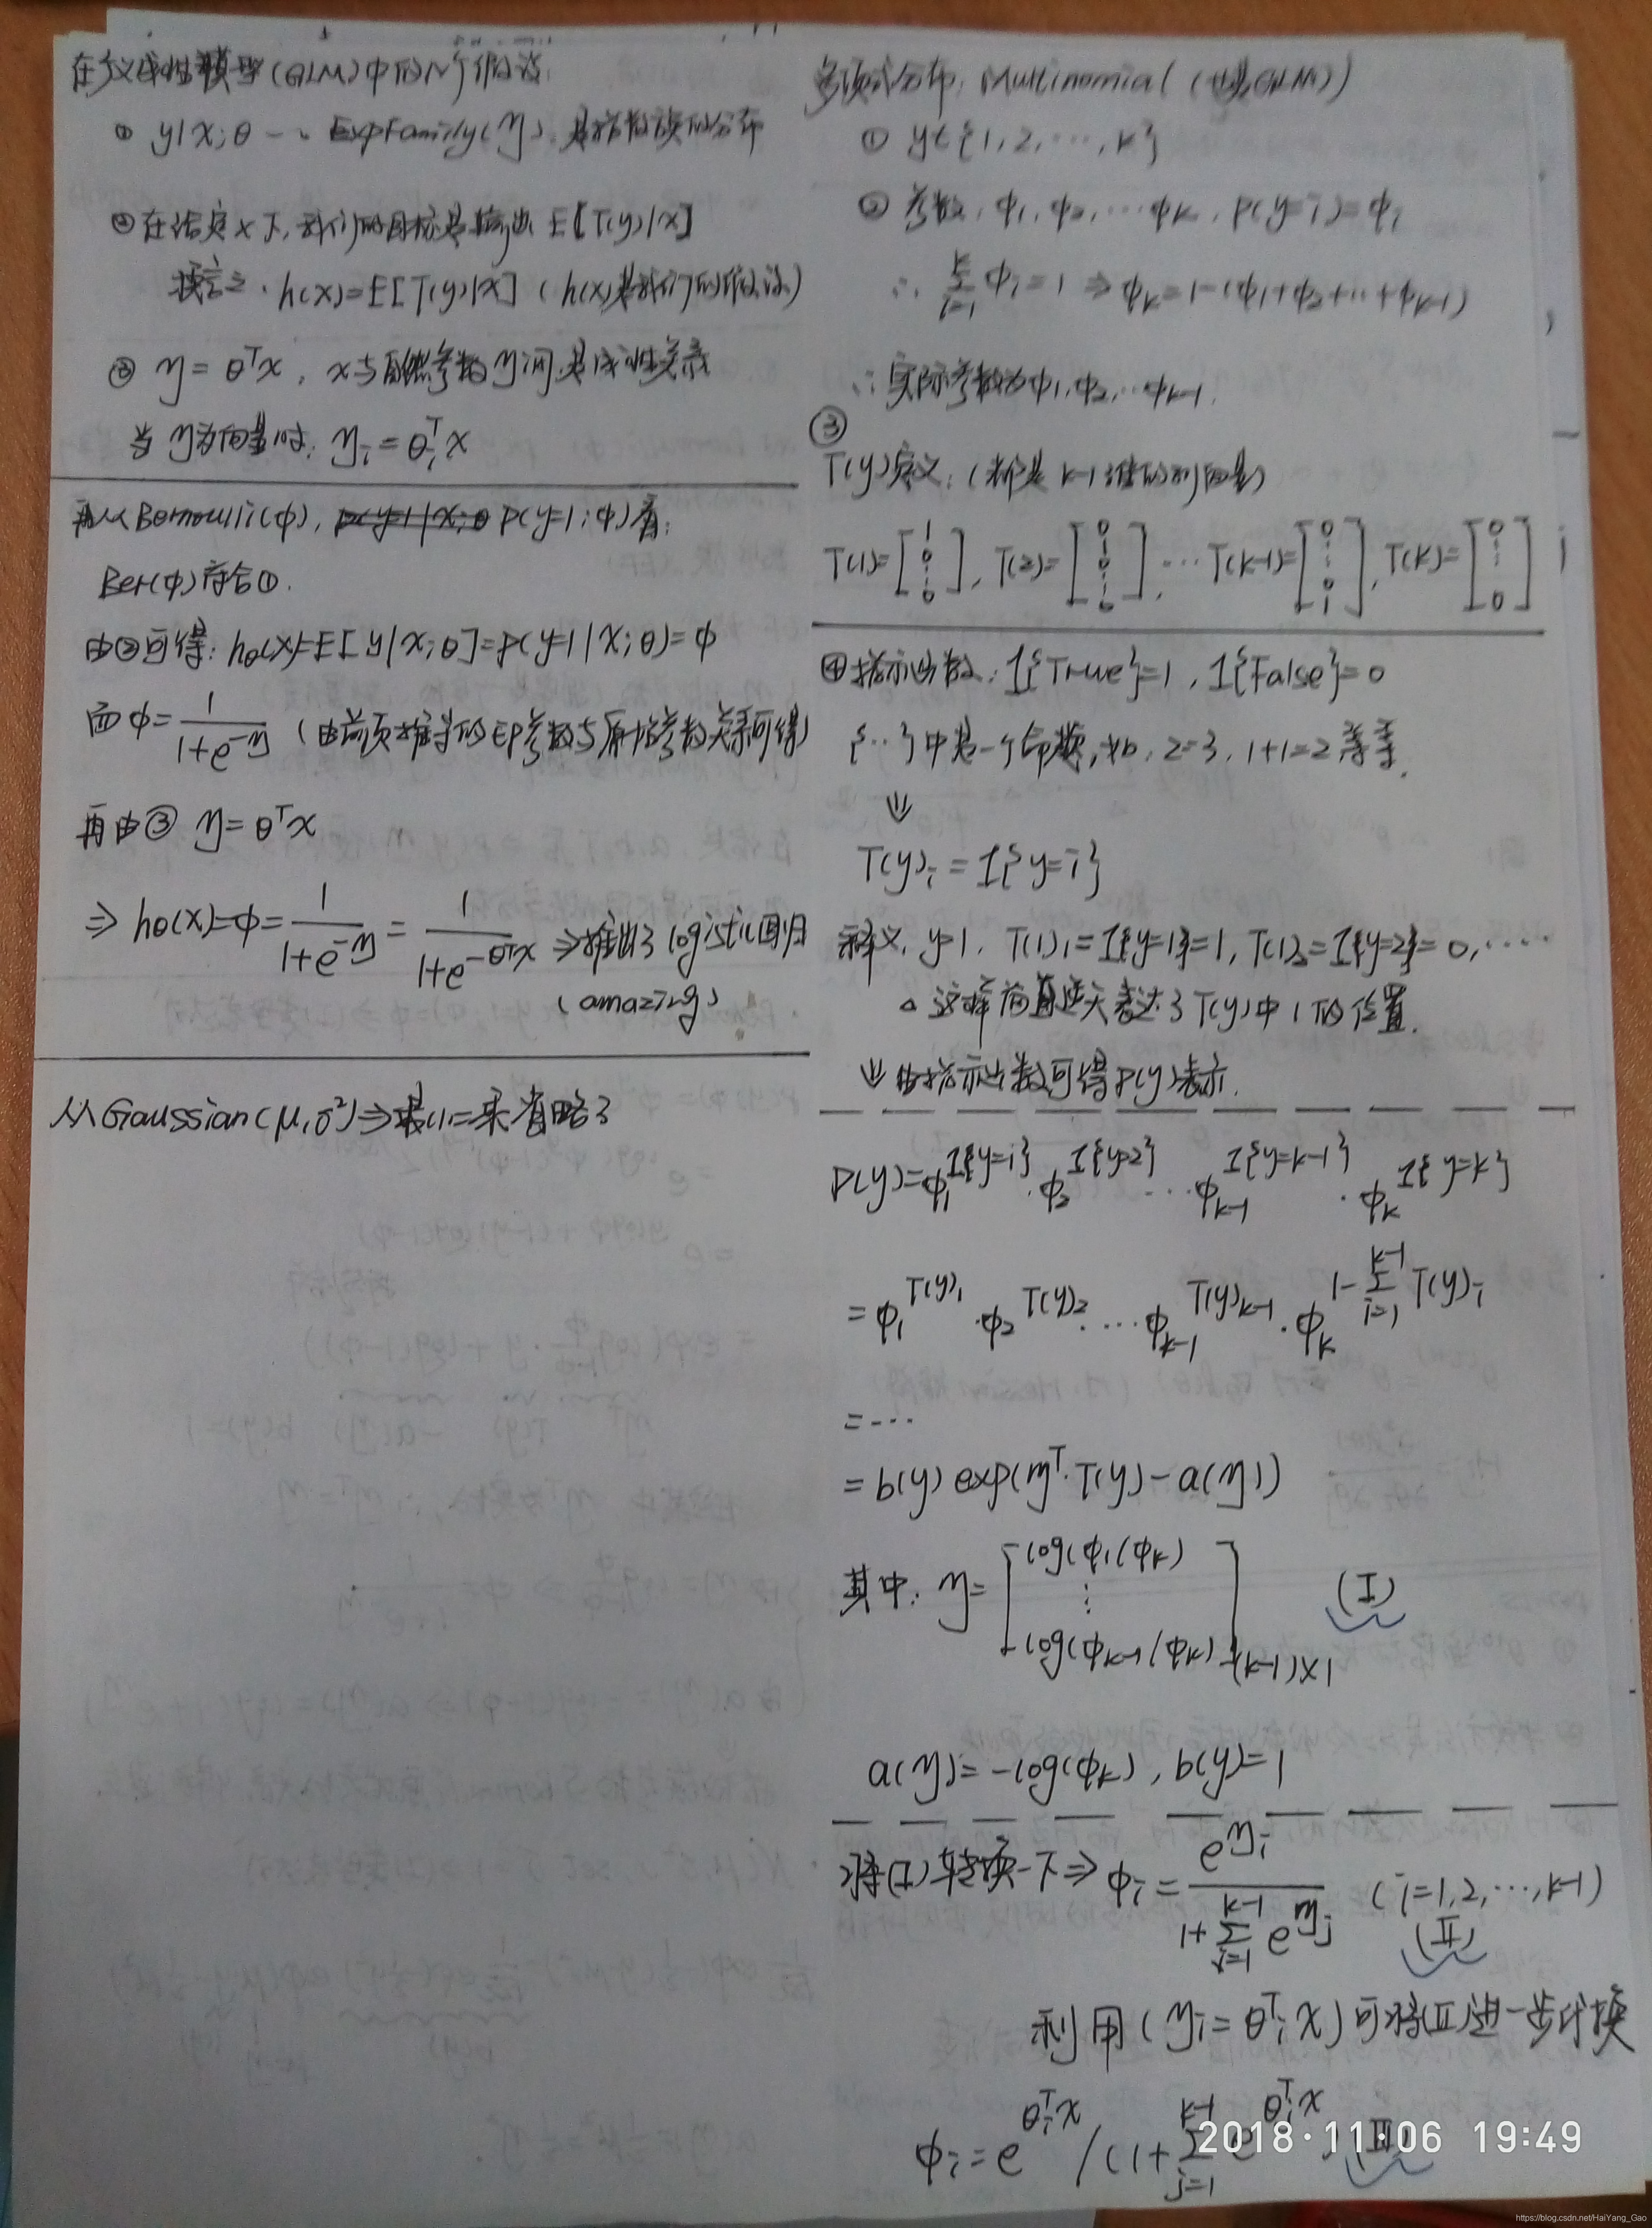 在广义线性模型(GLM)中的N个假设:
① y|x;θ ~ ExpFamily(η), 是指数族的分布
② 在给定x下,我们的目标是输出 E[T(y)|x]
换言之, h(x)=E[T(y)|x] (h(x)是我们的假设)
③ η = θᵀx, x与自然参数η间是线性关系
当η为向量时, ηᵢ = θᵢᵀx
再从Bernoulli(φ), P(y=1;φ)看:
Ber(φ)符合①.
由②可得: hθ(x)=E[y|x;θ]=P(y=1|x;θ)=φ
而 φ = 1/(1+e^(-η)) (由前页推导的EF参数与原始参数关系可得)
再由③ η = θᵀx
⇒ hθ(x)=φ= 1/(1+e^(-η)) = 1/(1+e^(-θᵀx)) ⇒推出了logistic回归
(amazing)
从Gaussian(μ,σ²)⇒最小二乘省略了
多项式分布: Multinomial (也是GLM)
① y∈{1,2,⋯,k}
② 参数, φ₁,φ₂,⋯φk, P(y=i)=φᵢ
∴ Σ_{i=1}^{k} φᵢ=1 ⇒ φk=1-(φ₁+φ₂+⋯+φk-1)
∴实际参数为φ₁,φ₂,⋯φk-1.
③
T(y)定义: (都是k-1维的列向量)
T(1)=[1 0 ⋮ 0], T(2)=[0 1 0 ⋮ 0], ⋯ T(k-1)=[0 ⋮ 0 1], T(k)=[0 ⋮ 0]
④指示函数: 1{True}=1, 1{False}=0
{⋯}中是一个命题,如, 2=3, 1+1=2等等.
⇓
T(y)ᵢ = 1{y=i}
释义, y=1, T(1)₁=1{y=1}=1, T(1)₂=1{y=2}=0,⋯⋯
△这样简直逆天表达了T(y)中1的位置.
⇓ 由指示函数可得P(y)表示.
P(y)=φ₁^1{y=1}·φ₂^1{y=2}⋯φk-1^1{y=k-1}·φk^1{y=k}
=φ₁^T(y)₁·φ₂^T(y)₂·⋯φk-1^T(y)k-1·φk^(1-Σ_{i=1}^{k-1}T(y)ᵢ)
=⋯
=b(y)exp(ηᵀ·T(y)-a(η))
其中: η=[log(φ₁/φk) ⋮ log(φk-1/φk)](k-1)×1 (I)
a(η)=-log(φk), b(y)=1
将(I)转换一下⇒ φᵢ = e^ηᵢ / (1+Σ_{j=1}^{k-1} e^ηⱼ) (i=1,2,⋯,k-1)
(II)
利用(ηᵢ=θᵢᵀx)可将(II)进一步代换
φᵢ=e^(θᵢᵀx) / (1+Σ_{j=1}^{k-1} e^(θⱼᵀx)) (III)
2018·11·06 19:49
https://blog.csdn.net/HaiYang_Gao